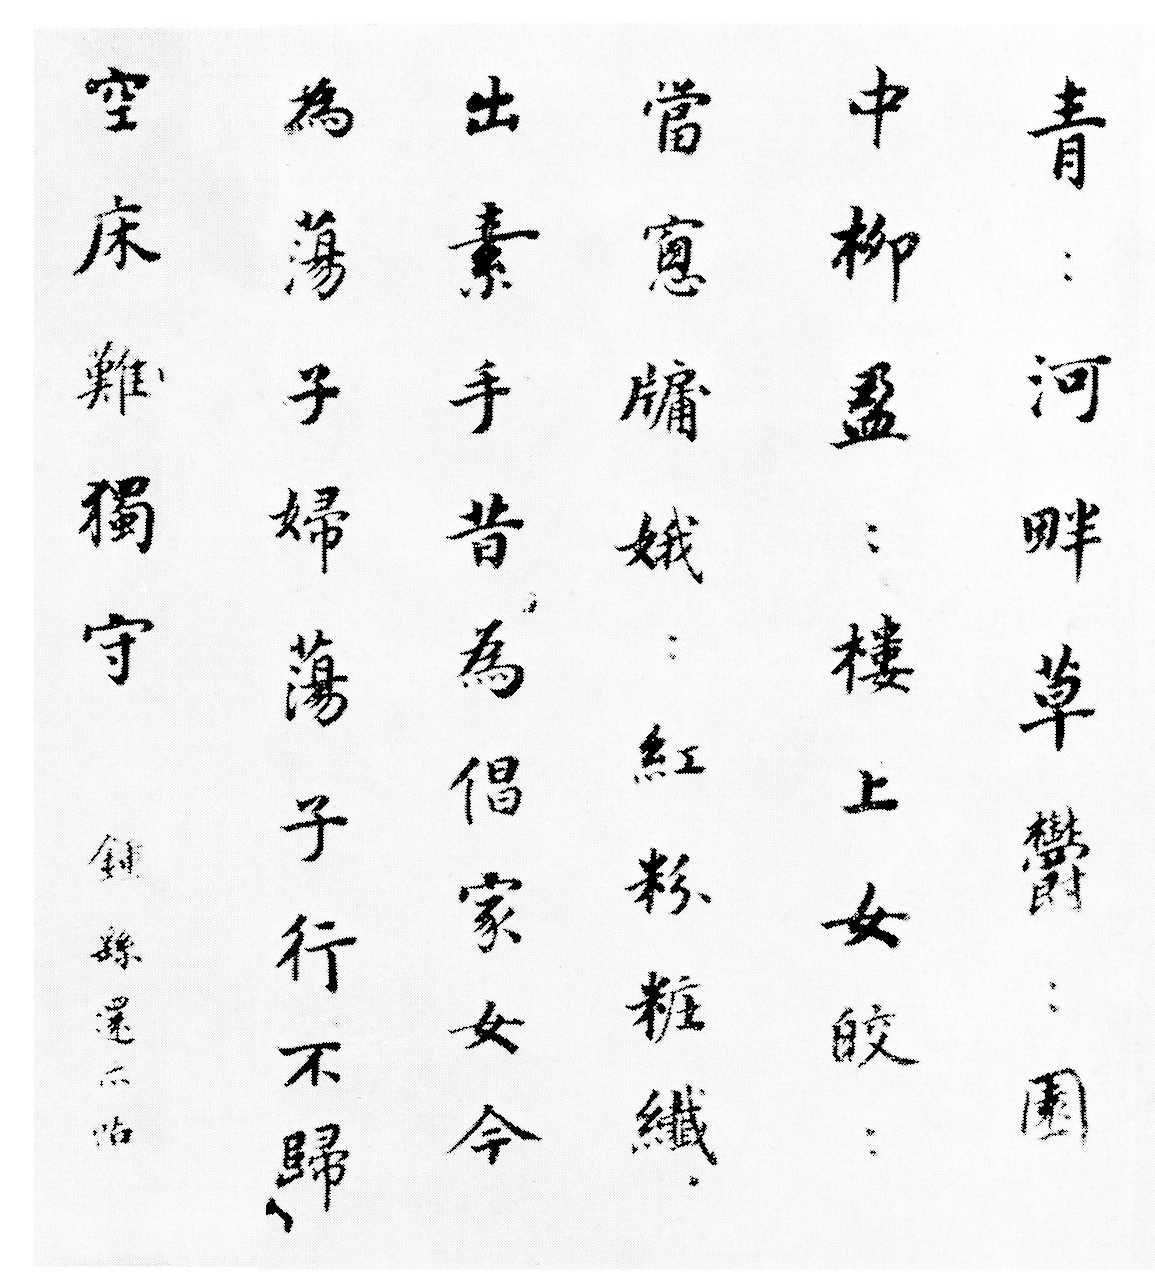 青：河畔草鬱：園
中柳盈：樓上女皎：
當窻牖娥：紅粉粧纖：
出素手昔為倡家女今
為蕩子婦蕩子行不歸
空床難獨守
鍾繇還示帖